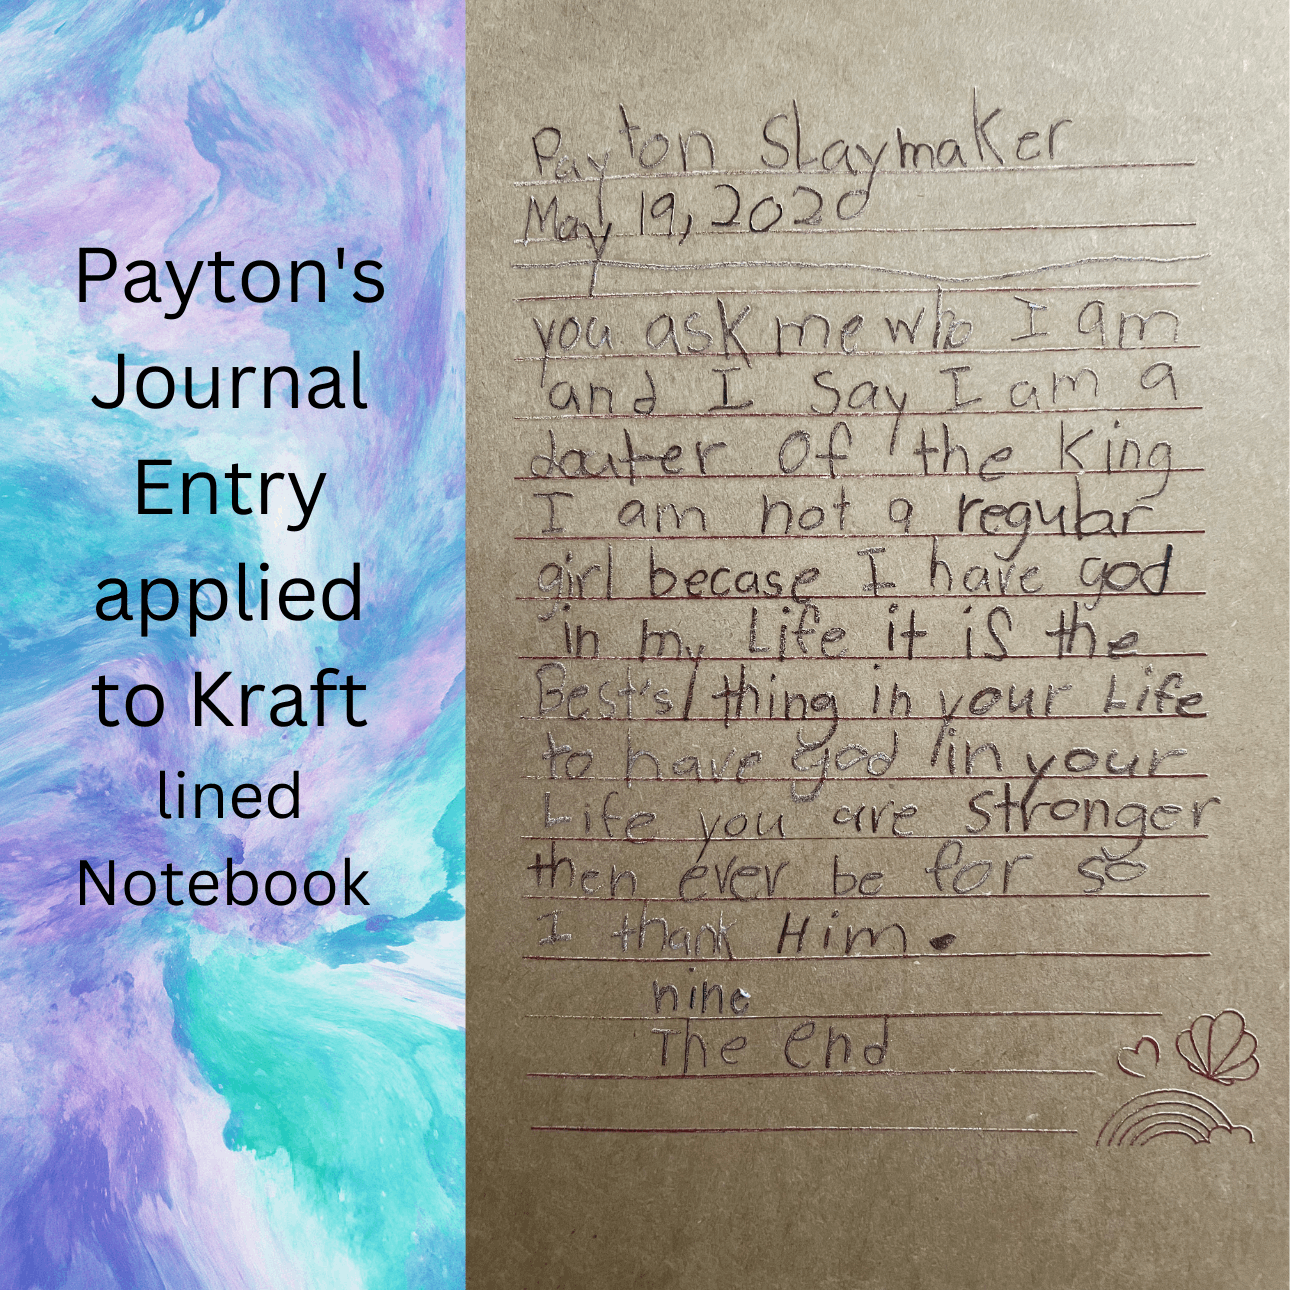 Payton's
Journal
Entry
applied
to Kraft
lined
Notebook
Payton Slaymaker
May 19, 2020
you ask me who I am
and I Say I am a
dauter Of the King
I am not a regular
girl becase I have god
in my Life it is the
Best's thing in your Life
to have god in your
Life you are Stronger
then ever be for so
I thank Him.
nine
The end